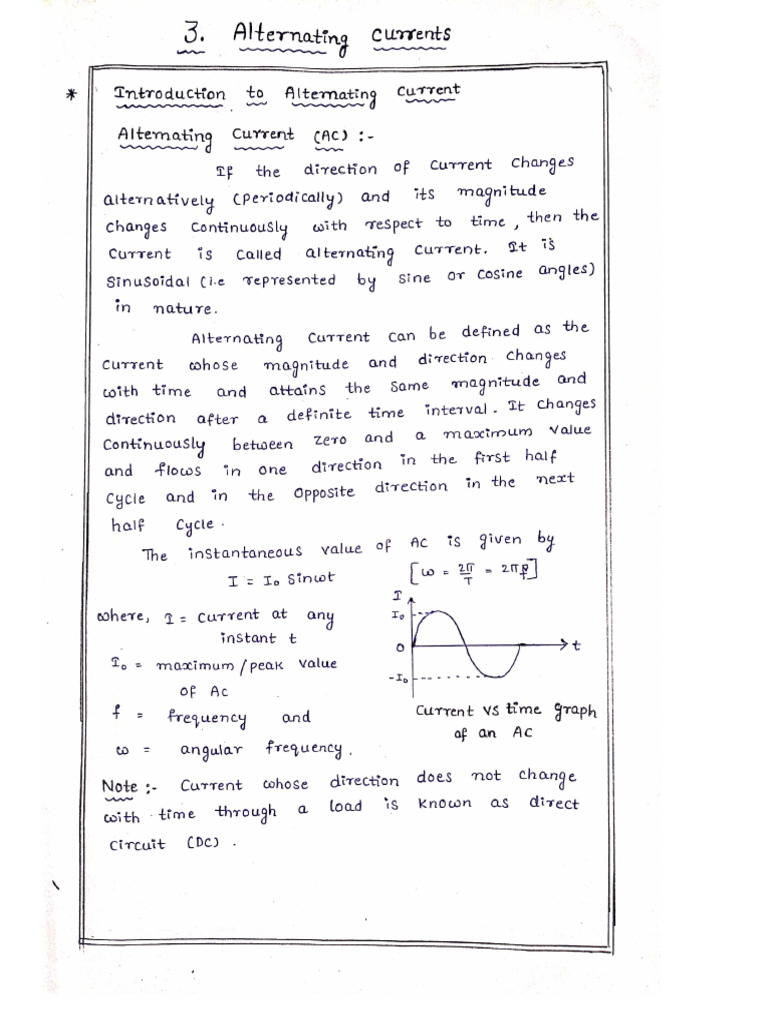 3. Alternating Currents
* Introduction to Alternating Current
Alternating Current (AC) :-
If the direction of Current Changes
alternatively (Periodically) and its magnitude
Changes Continuously with respect to time, then the
Current is Called alternating Current. It is
Sinusoidal (i.e represented by Sine or Cosine angles)
in nature.
Alternating Current Can be defined as the
Current whose magnitude and direction Changes
with time and attains the Same magnitude and
direction after a definite time interval. It Changes
Continuously between Zero and a maximum Value
and flows in one direction in the first half
Cycle and in the Opposite direction in the next
half Cycle.
The instantaneous value of AC is given by
I = I₀ Sinωt [ω = 2π/T = 2πf]
where, I = Current at any
instant t
I₀ = maximum/peak Value
of AC
f = frequency and
ω = angular frequency.
I
I₀
0
t
-I₀
Current VS time graph
of an AC
Note :- Current whose direction does not change
with time through a load is known as direct
Circuit (DC).